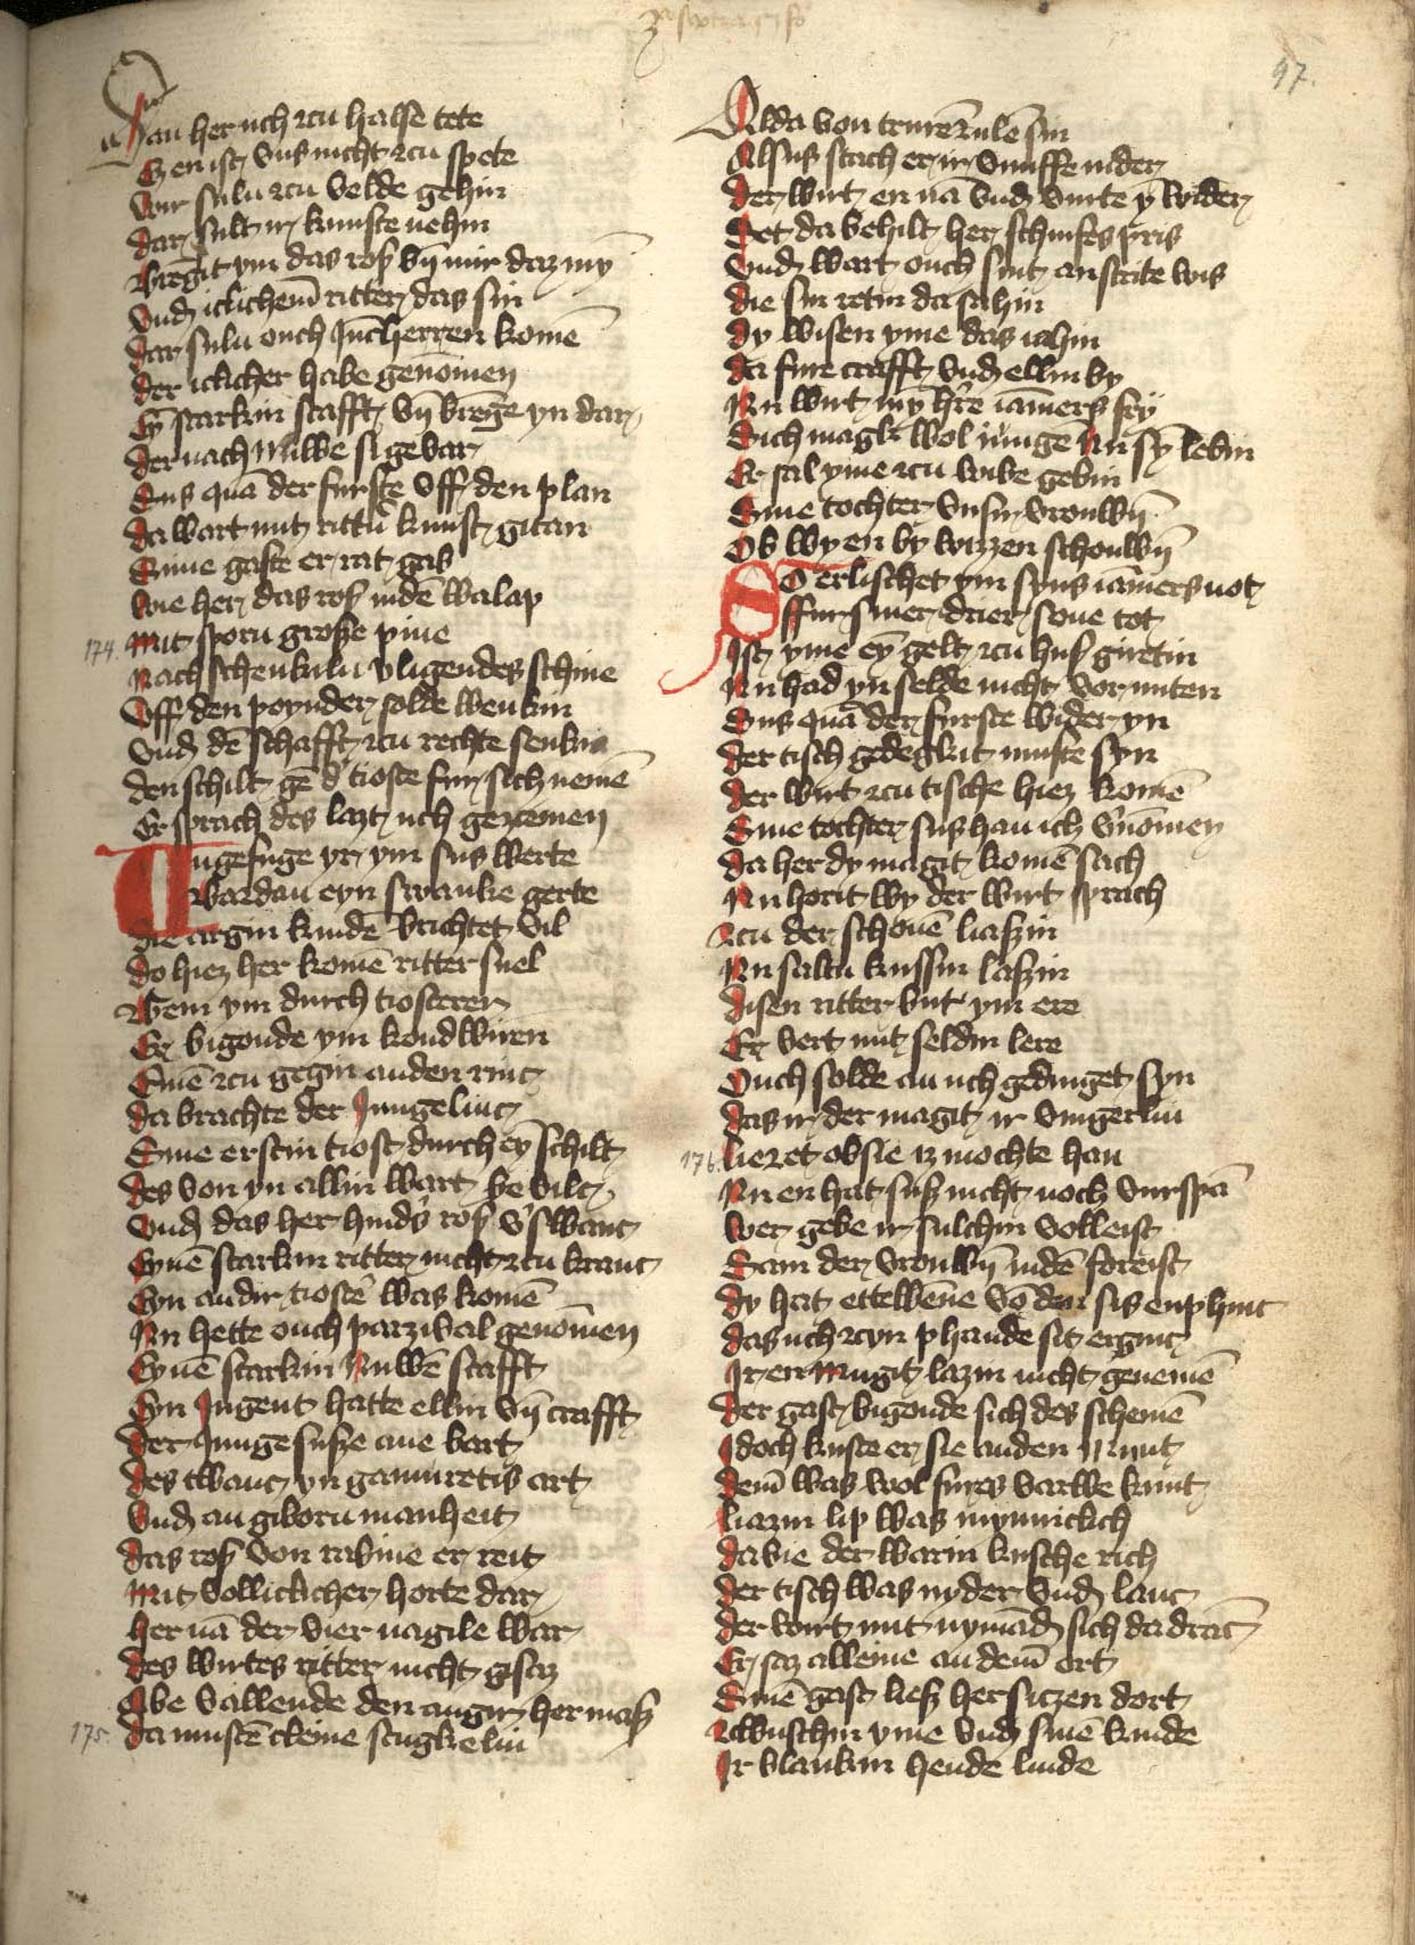 97.
Han her uch zcu halse tete
Ez en ist uns nicht zcu spete
Wir suln zcu velde gehin
dar sult ir kunste nehin
Brēgit ym das ros vn̄ mir daz my̅
Vnd iclichem̄ ritter das sin
dar suln ouch Jūcherren komē
der iclicher habe genōmen
Ey̅ starkin scafft vn̄ brēge yn dar
der nach nuwe si gevar
Sus quā der furste vff den plan
da wart mit rittn̄ kunst gitan
Sime gaste er rat gab
wie her das ros in dē walap
174.
Mit sporn grosze pine
Nach schenkuln vligendes schine
Vff den poynder solde wenkin
Vnd dē schafft zcu rechte senkin
den schilt gē d' tioste fur sich nemē
Er sprach des lazt uch gezemen
Ungefuge yr ym sus werte
Baz dan eyn swanke gerte
die argin kindē brichtet vil
do hiez her komē ritter snel
Kein ym durch tiosteren
Er bigonde ym kondwiren
Einē zcu gegin an den rinc
da brachte der Jungelinc
Sine erstin tiost durch ey̅ schilt
des von yn allin wart bevilt
Vnd das her hindr̄ ros v'swanc
Eynē starkin ritter nicht zcu kranc
Eyn andir tiostē was komē
Nu hette ouch parzival genōmen
Eynē starkin Nuwē scafft
Syn Jugent hatte ellin vn̄ crafft
der Junge susze ane bart
des twanc yn gamuretis art
Vnd an giborn manheit
das ros von rabine er reit
Mit vollicklicher horte dar
her nā der vier nagile war
des wirtes ritter nicht gisaz
Abe vallende den angir her masz
175.
da mustē cleine stugke lin
Alda von trunzunē sin
Alsus stach er ir vumffe nider
der wirt en nā vnd vurte y̅ wider
Det da behilt her schinfes pris
Vnd wart ouch sint an strite wis
die sin retin da sahin
dy wisen yme das iahin
da fure crafft vnd ellin by
Nu wirt my̅ h're iāmers fry
Sich magk wol iungē nu sy̅ lebin
Er sal yme zcu wibe gebin
Sine tochter vnsir vrouwn̄
Ob wy en by wizzen schouwn̄
So erlischet ym syns iāmers not
ffur siner drier sone tot
Ist yme ey̅ gelt zcu hus giretin
Nu had yn selde nicht vormiten
Sus quā der furste wider yn
der tisch gedegkit muste syn
der wirt zcu tische hiez komē
Sine tochter sus han ich v'nōmen
da her dy magit komē sach
Nu horit wy der wirt sprach
zcu der schonē liaszin
Nu saltu kussin laszin
disen ritter but ym ere
Er vert mit seldin lere
Ouch solde an uch gedinget syn
das ir der magit ir vingerlin
176.
liezet ob sie iz mochte han
Nu en hat susz nicht noch vurspā
wer gebe ir sulchin volleist
Sam der vrouwn̄ in dē foreist
dy hat ettewēne vō den sis enphinc
das uch zcyn phande sit erginc
Ir en mugit lazin nicht genemē
der gast bigonde sich des schemē
Idoch kuste er sie an den Munt
dem̄ was wol fures varwe kunt
liazin lip was mynniclich
da bie der warin kusche rich
der tisch was nyder vnd lanc
der wirt mit nymād sich da dranc
Er saz alleine an dem̄ ort
Sinē gast liesz her siczen dort
zwuschin yme vnd sinē kinde
Ir blankin hende linde